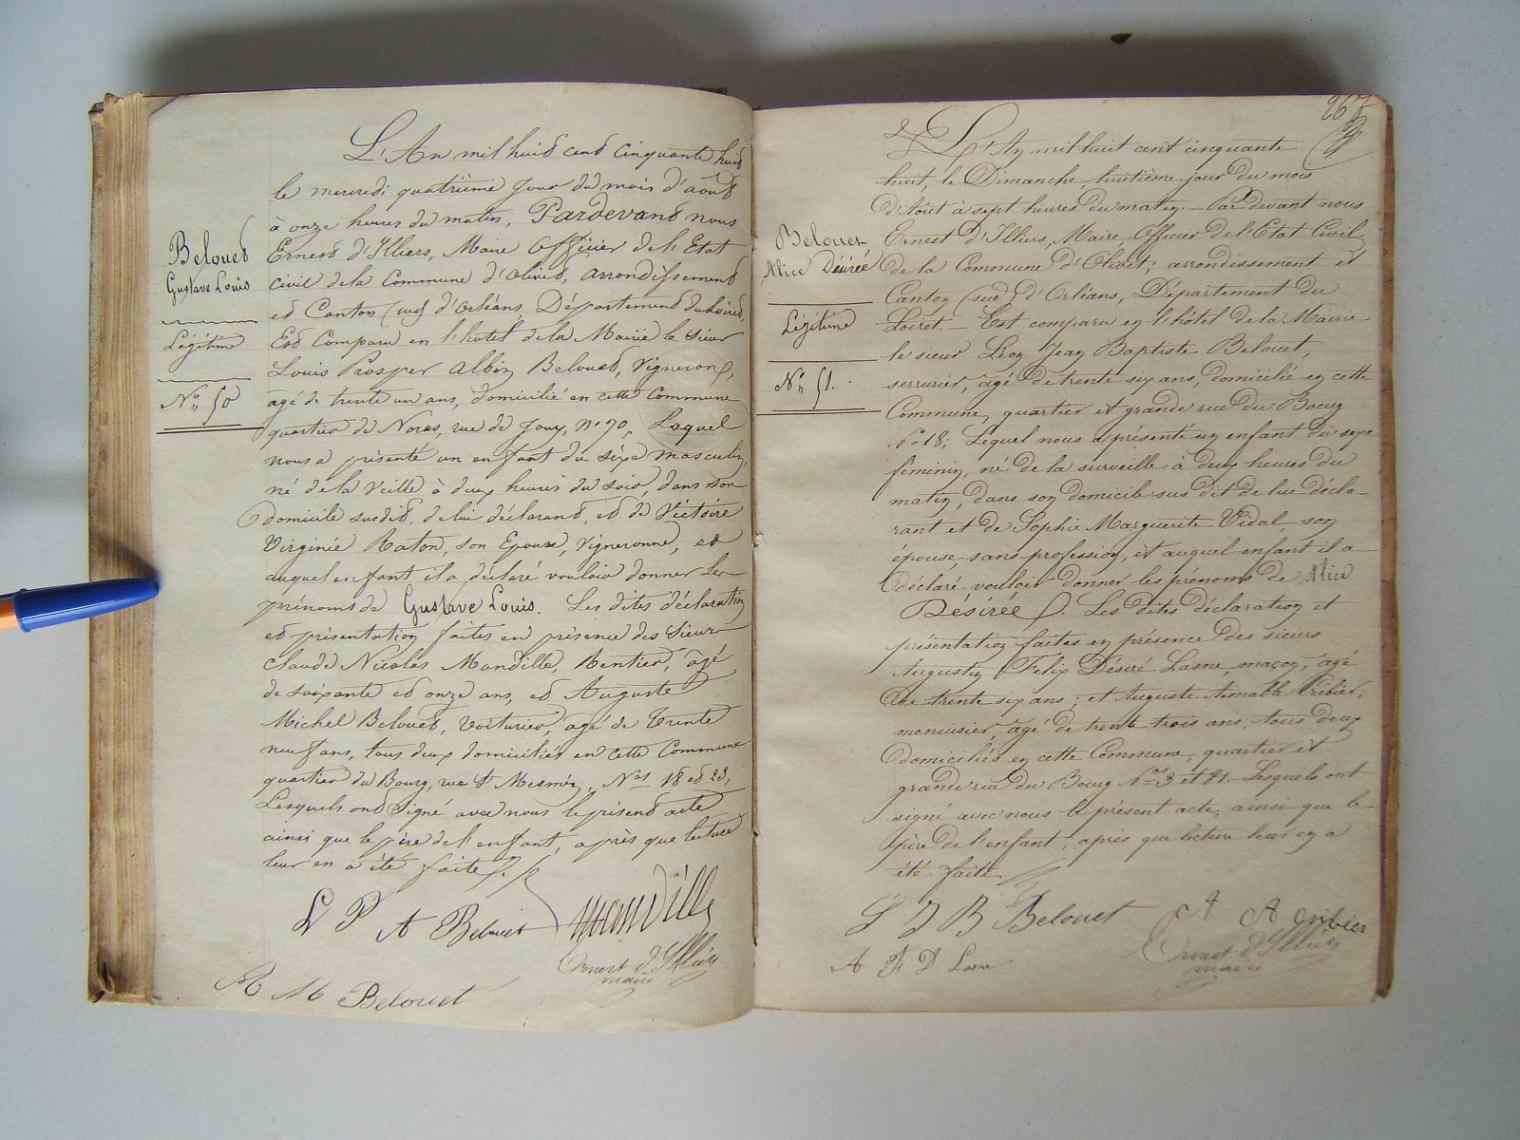 Belouet
Gustave Louis
Légitime
No 50
L'An mil huit cent cinquante huit
le mercredi quatrième jour du mois d'août
à onze heures du matin, Pardevant nous
Ernest d'Illiers, Maire Officier de l'Etat
civil de la Commune d'Olivet, arrondissement
et Canton (sud) d'Orléans, Département du Loiret,
Est Comparu en l'hôtel de la Mairie le Sieur
Louis Prosper Albin Belouet, Vigneron,
agé de trente un ans, domicilié en cette Commune
quartier de Noras, rue de Jouy, no 70, Lequel
nous a présenté un enfant du sexe masculin,
né de la Veille à deux heures du soir, dans son
domicile susdit, de lui déclarant, et de Victoire
Virginie Raton, son Epouse, Vigneronne, et
auquel enfant il a déclaré vouloir donner les
prénoms de Gustave Louis. Les dites déclaration
et présentation faites en présence des Sieurs
Claude Nicolas Mandille, Rentier, agé
de soixante et onze ans, et Auguste
Michel Belouet, Voiturier, agé de Trente
neuf ans, tous deux domiciliés en cette Commune
quartier du Bourg, rue St Mesmin, Nos 18 et 23,
Lesquels ont Signé avec nous le présent acte
ainsi que le père de l'enfant, après que lecture
leur en a été faite.
L P A Belouet Mandille
Ernest d'Illiers
maire
A M Belouet
267
Belouet
Alice Désirée
Légitime
No 51.
L'An mil huit cent cinquante
huit, le Dimanche, huitième jour du mois
d'Août à sept heures du matin. Par devant nous
Ernest D'Illiers, Maire, Officier de l'Etat Civil
de la Commune d'Olivet; arrondissement et
Canton (sud) d'Orléans, Département du
Loiret. Est comparu en l'hôtel de la Mairie
le sieur Léon Jean Baptiste Belouet,
serrurier, agé de trente six ans, domicilié en cette
Commune, quartier et grande rue du Bourg
No 18; Lequel nous a présenté un enfant du sexe
féminin, né de la surveille à deux heures du
matin, dans son domicile sus dit de lui décla-
rant et de Sophie Marguerite Vidal, son
épouse, sans profession, et auquel enfant il a
déclaré vouloir donner les prénoms de Alice
Désirée. Les dites déclaration et
présentation faites en présence des sieurs
Augustin Félix Désiré Lasne, maçon, agé
de trente six ans; et Auguste Aimable Cribier,
menuisier, agé de trente trois ans, tous deux
domiciliés en cette Commune, quartier et
grande rue du Bourg Nos 3 et 21. Lesquels ont
signé avec nous le présent acte, ainsi que le
père de l'enfant, après que lecture leur en a
été faite.
L J B Belouet A A Cribier
Ernest d'Illiers
maire
A F D Lasne